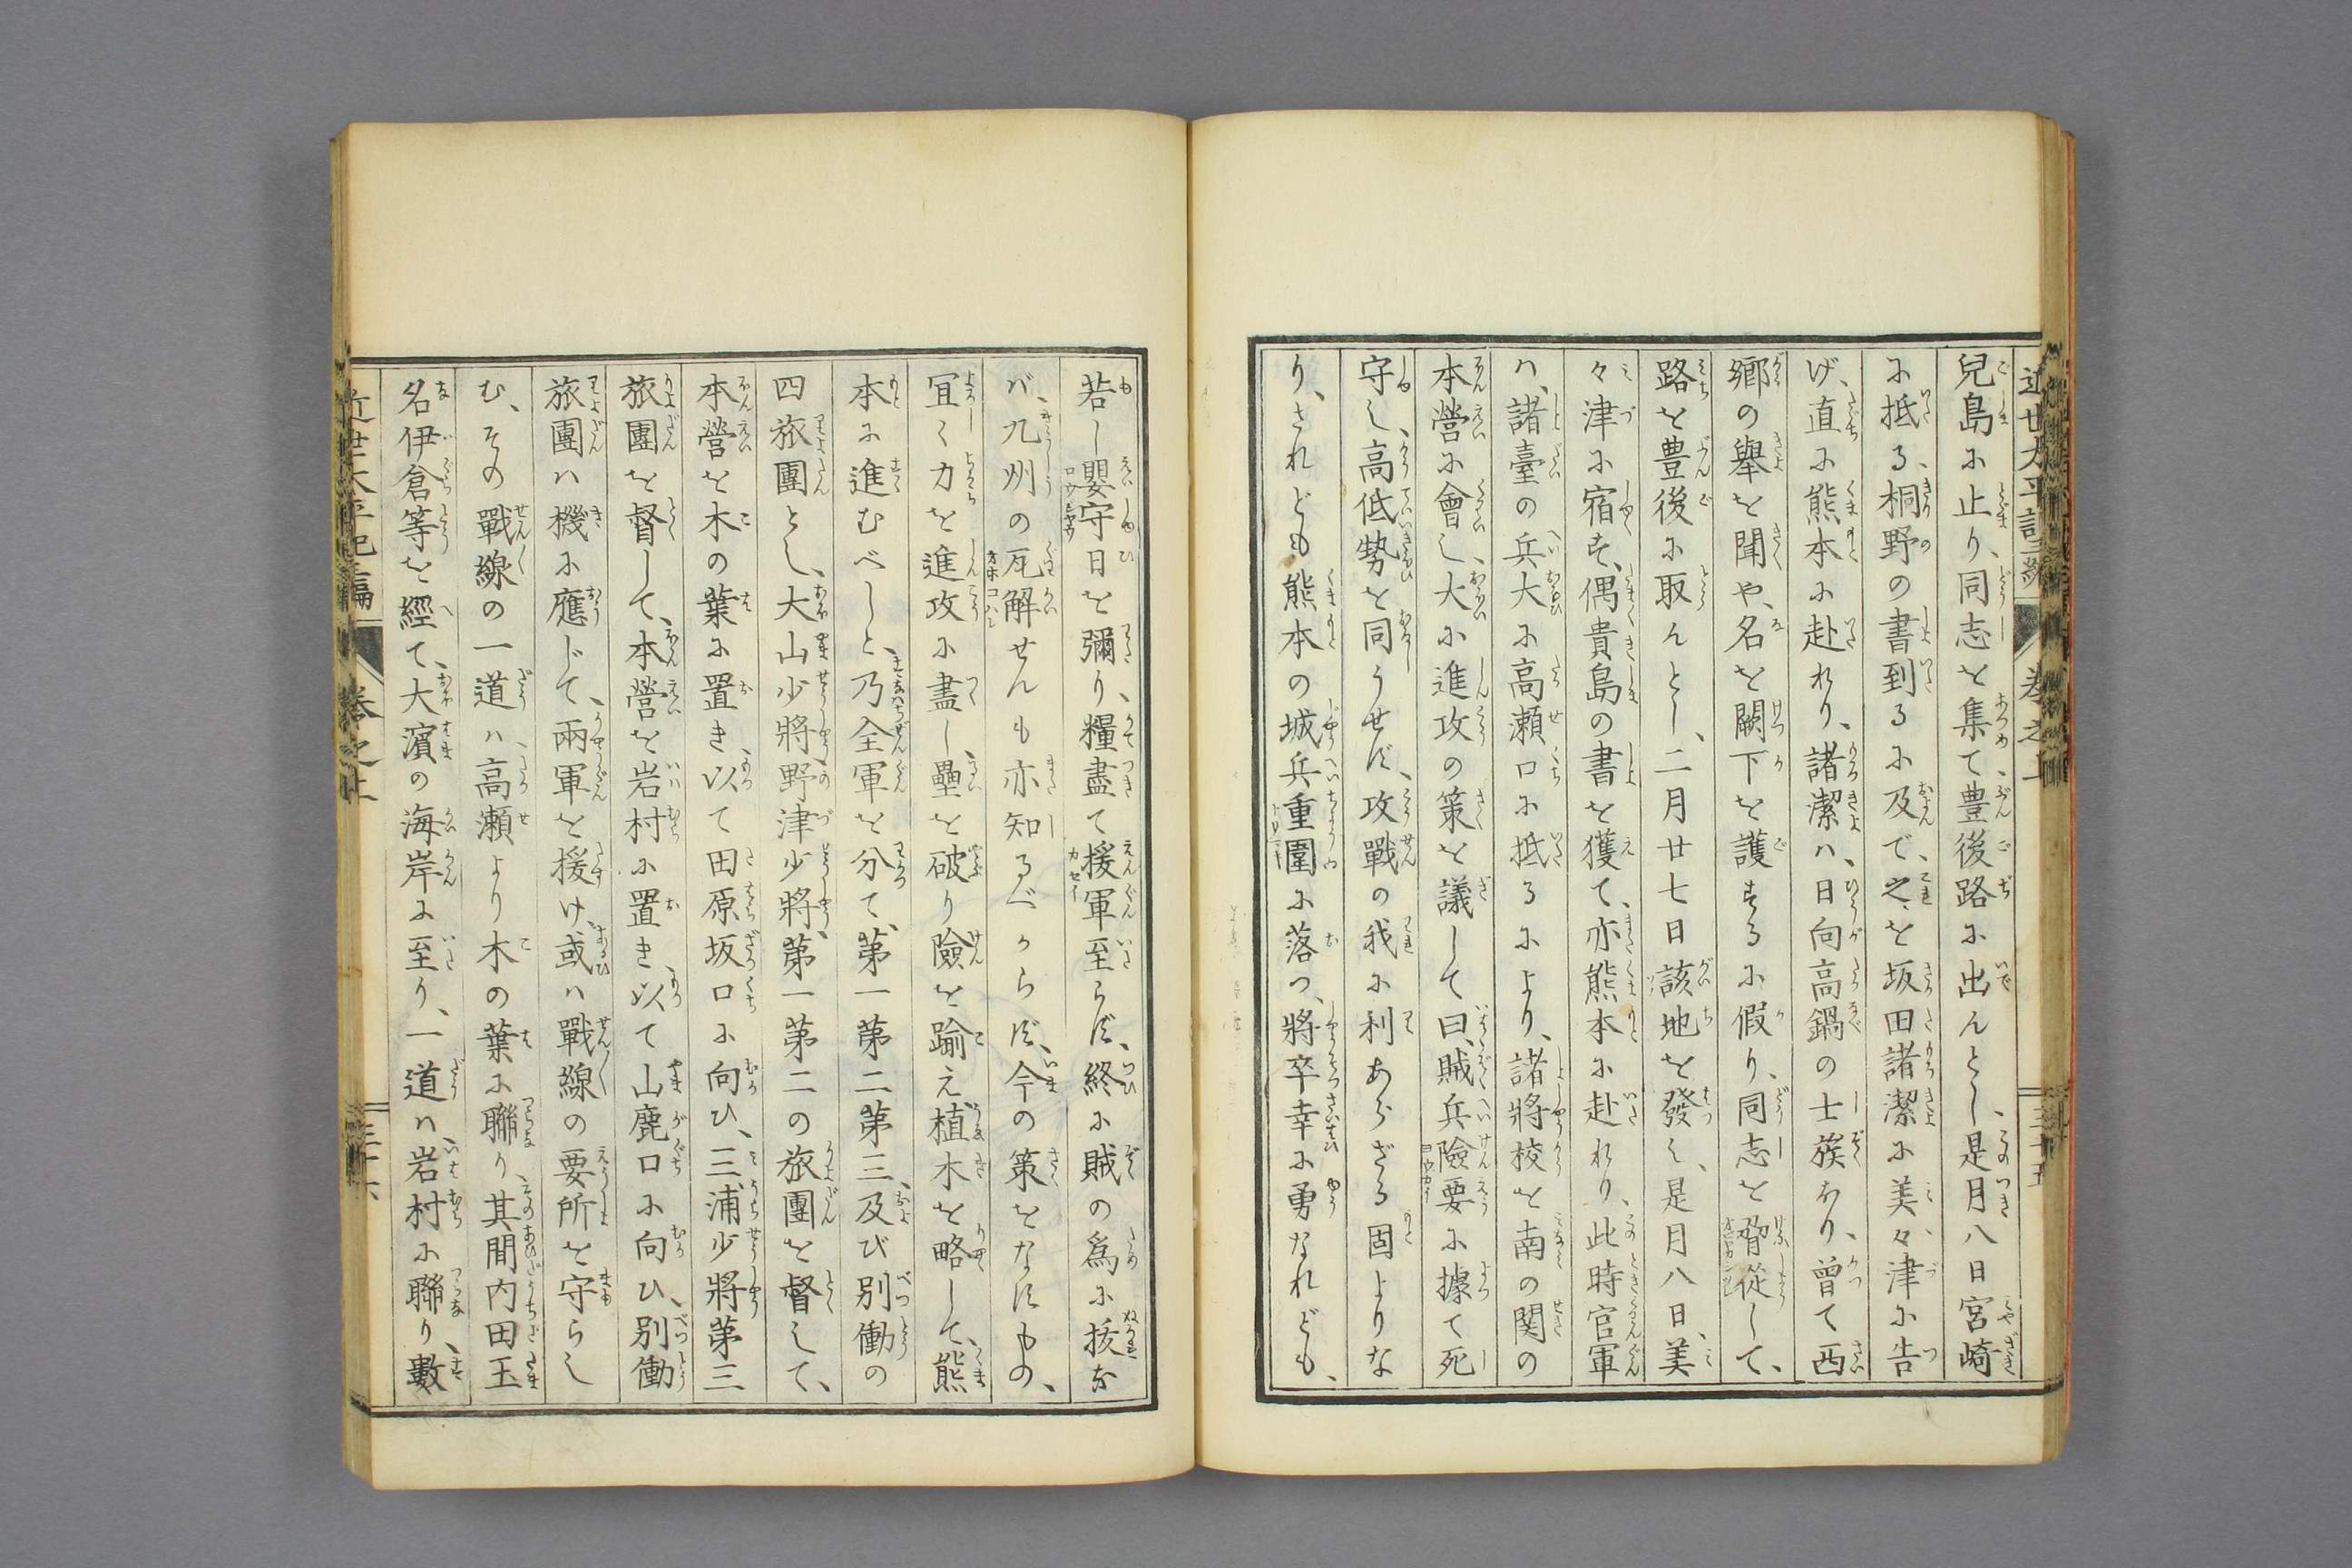 兒島に止り、同志を集て、豊後路に出んとし、是月八日宮崎
に抵る、桐野の書到るに及で、之を坂田諸潔に美々津に告
げ、直に熊本に赴れり、諸潔ハ、日向高鍋の士族なり、曾て西
郷の舉を聞や、名を闕下を護するに假り、同志を脅從して、
路を豊後に取んとし、二月廿七日該地を發し、是月八日、美
々津に宿す、偶貴島の書を獲て、亦熊本に赴れり、此時官軍
ハ、諸臺の兵大に高瀬口に抵るにより、諸將校を南の関の
本營に會し、大に進攻の策を議して曰、賊兵險要に據て死
守し、高低勢を同うせず、攻戰の我に利あらざる固よりな
り、されども熊本の城兵重圍に落つ、將卒幸に勇なれども、
若し嬰守日を彌り、糧盡て援軍至らず、終に賊の爲に抜な
バ、九州の瓦解せんも亦知るべからず、今の策をなすもの、
宜く力を進攻に盡し、壘を破り險を踰え植木を略して、熊
本に進むべしと、乃全軍を分て、第一第二第三、及び別働の
四旅團とし、大山少將、野津少將、第一第二の旅團を督して、
本營を木の葉に置き、以て田原坂口に向ひ、三浦少將第三
旅團を督して、本營を岩村に置き、以て山鹿口に向ひ、別働
旅團ハ機に應じて、兩軍を援け、或ハ戰線の要所を守らし
む、その戰線の一道ハ、高瀬より木の葉に聯り、其間内田玉
名伊倉等を經て、大濱の海岸に至り、一道ハ、岩村に聯り、數
近世太平記
卷之上
三十五